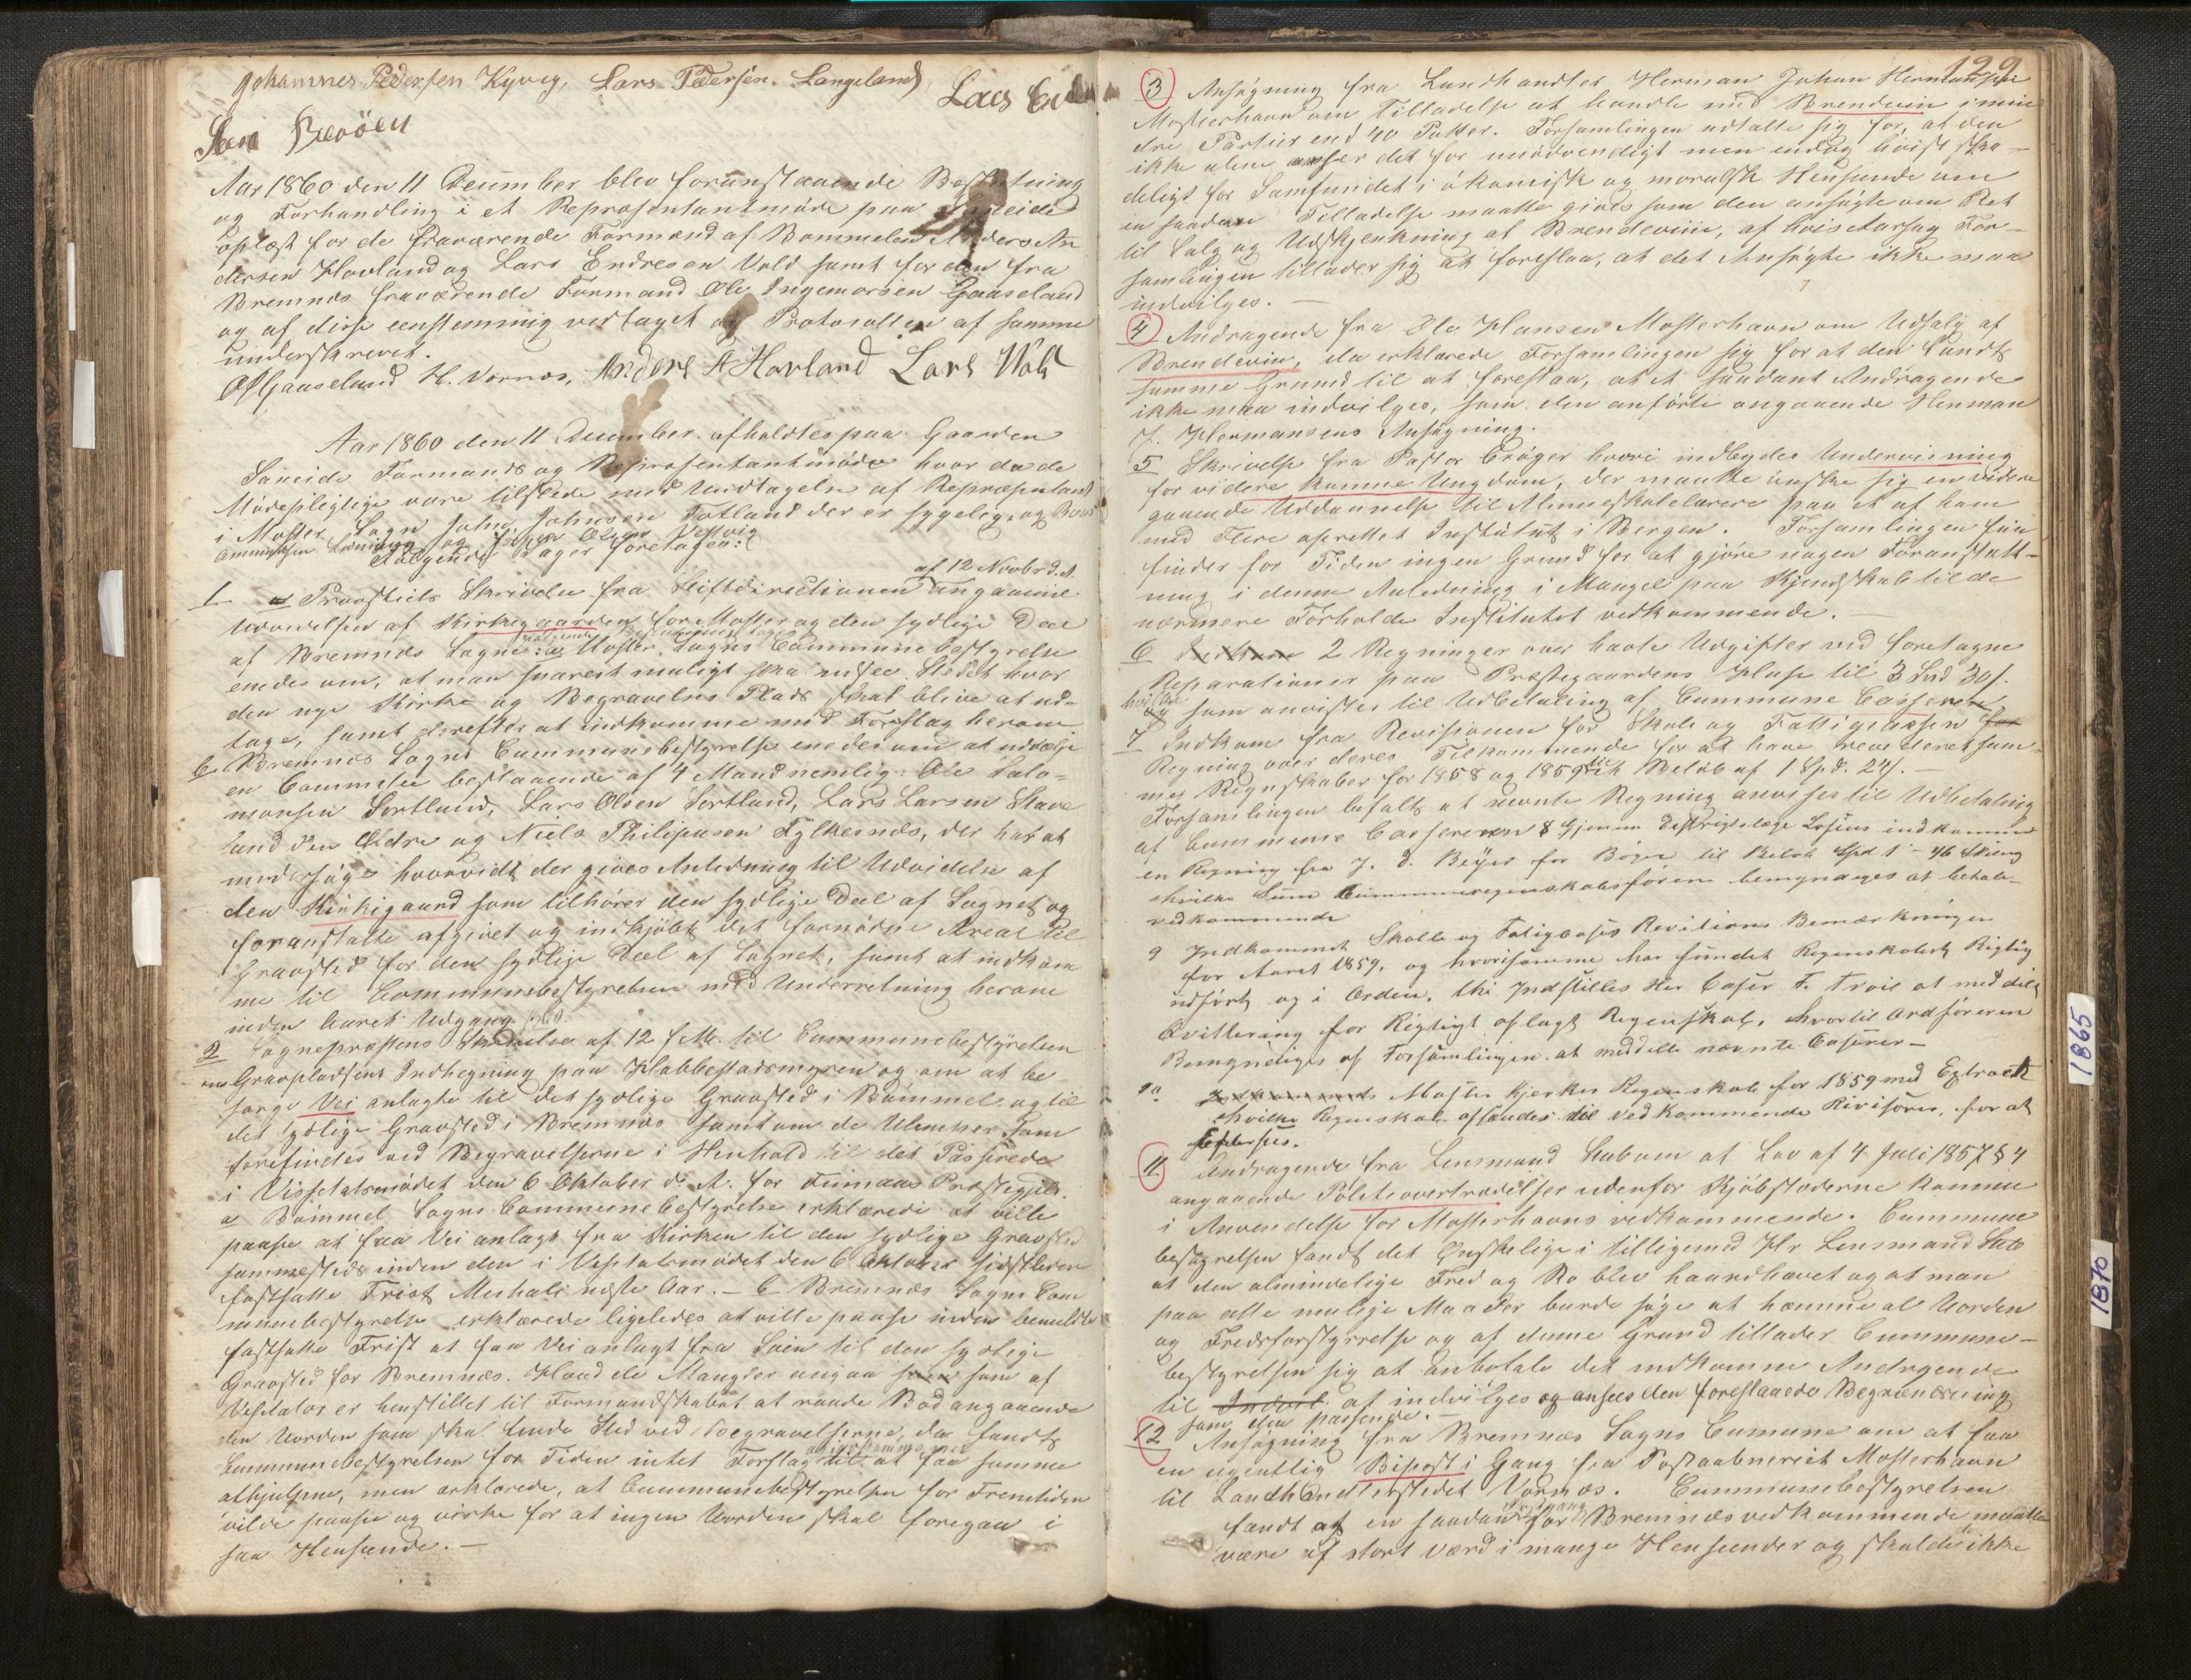 Johannes Pedersen Kyvig, Lars Pedersen Langeland Lars End
Sen Brvöen
Aar 1860 den 11 December blev foranstaaende Beslutning
og Forhandling i et Repræsentantmöde paa Saneide
oplæst for de fraværende Formænd af Bommelen Anders An
dersen Hovland og Lars Endresen Vold samt for den fra
Bremnes fraværende Formand Ole Ingemorsen Gaaseland
og af disse eenstemmig vedtaget og Protocollen af samme
underskrevet.
O I Gaaseland H. Vornæs, Anders A Hovland Lars Wold
Aar 1860 den 11 December afholdtes paa Gaarden
Saneide Formands og Repræsentantmöde hvor da de
Mödepligtige vare tilstede med Undtagelse af Repræsentant
i Moster Sogn John Johnsen Totland der er sygelig, og
og Olsen Vestvig
Fölgende Sager foretages:
af 12 Novbr d. A.
1 Provstiets Skrivelse fra Stiftdirectionen angaaende
Udvidelsen af Kirkegaarden for Moster og den sydlige Deel
af Bremnes Sogne: a Moster Sogns Communebestyrelse
enedes om, at man snarest muligt ska udsee Stedet hvor
den nye Kirke og Begravelses Plads skal blive at ud-
tage, samt derefter at indkomme med Forslag herom
b. Bremnes Sogns Communebestyrelse enedes om at udvælge
en Committee bestaaende af 4 Mænd nemlig: Ole Salo-
monsen Sortland, Lars Olsen Sortland, Lars Larsen Stave
land den Ældre og Niels Philipusen Fylkesnes, der har at
undersöge hvorvidt der gives Anledning til Udvidelse af
den Kirkigaard som tilhörer den sydlige Deel af Sognet og
foranstalte afgivet og indkjöbt det fornödne Areal til
Gravsted for den sydlige Deel af Sognet, samt at indkom
me til Communebestyrelsen med Underretning herom
inden Aarets Udgang 1860.
2 Sognepræstens Skrivelse af 12 f. M. til Communebestyrelsen
om Gravpladsens Indhegning paa Habbestadsmyren og om at be-
sörge Vei anlagte til det sydlige Gravsted i Bömmel og til
det sydlige Gravsted i Bremnes samt om de Ulemper som
forefindes ved Begravelserne i Henhold til det Passerede
i Visitatsmödet den 6 Oktober d. A. for Finnaas Præstegjeld.
a Bömmel Sogns Communebestyrelse erklærede at ville
paasee at faa Vei anlagt fra Kirken til den sydlige Gravsted
sammesteds inden den i Visitatsmödet den 6 Oktober sidstleden
fastsatte Frist Michali næste Aar. — b Bremnes Sogns Com
munebestyrelse erklærede ligeledes at ville paasee inden bemeldte
fastsatte Frist at faa Vei anlagt fra Söen til den sydlige
Gravsted for Bremnes. Hvad de Mangler angaa som af
Visitator er henstillet til Formandskabet at raade Bod angaaende
den Uorden som skal finde Sted ved Begravelserne, da fandt
Communebestyrelsen for Tiden intet Forslag til at faa samme
afhjulpne, men erklærede, at Communebestyrelsen for Fremtiden
vilde paasee og virke for at ingen Uorden skal foregaa i
saa Henseende. —
129
3 Ansögning fra Landhandler Herman Johan Hermansen
Mosterhavn om Tilladelse at handle med Brendevin i min
dre Partier end 40 Potter. Forsamlingen udtalte sig for, at den
ikke alene anseer det for unödvendigt men endog höist ska-
deligt for Samfundet i ökonomisk og moralsk Henseende om
en saadan Tilladelse maatte gives som den ansögte om Ret
til Salg og Udskjenkning af Brendeviin, af hvis Aarsag For-
samlingen tillader sig at foreslaa, at det Ansögte ikke maa
indvilges. —
4 Andragende fra Ole Hansen Mosterhavn om Udsalg af
Brendevin, da erklærede Forsamlingen sig for at den fandt
samme Grund til at foreslaa, at et saadant Andragende
ikke maa indvilges, som den anförte angaaende Herman
J. Hermansens Ansögning.
5 Skrivelse fra Pastor Cröger hvori indbydes Underviisning
for videre komne Ungdom, der maatte önske sig en videre
gaaende Uddannelse til Almueskolelærere paa et af ham
med Flere oprettet Institut i Bergen. Forsamlingen
finder for Tiden ingen Grund for at gjöre nogen Foranstalt-
ning i denne Anledning i Mangel paa Kjendskab til de
nærmere Forholde Institutet vedkommende. —
6 2 Regninger over havte Udgifter ved foretagne
Reparationer paa Præstegaardens Huse til 3 Spd 30 s.
hvilke som anvistes til Udbetaling af Commune Casseren.
7 Indkom fra Revisionen for Skole og Fattigcassen
Regning over deres Tilkommende for at have revideret sam-
mes Regnskaber for 1858 og 1859 til Belöb af 1 Spd. 24 s. —
Forsamlingen befalt at nevnte Regning anvises til Udbetaling
af Commune Casseren. 8 Gjennem Distrigslæge Losius indkomme
en Regning fra J. d. Beÿer for Böger til Belöb Spd 1 - 46 Skiling
hvilke Sum Communeregenskabsföreren bemyndiges at betale
vedkommende
9 Indkommet Skolle og Fatigcasses Revitions Bemærkninger
for Aaret 1859, og hvorisomme har fundet Regenskabet Rigtig
udfört og i Orden, thi Indstilles Her Caser F. Troie at meddeles
Qvittering for Rigtigt aflagt Regenskab, hvortil Ordföreren
Bemyndiges af Forsamlingen at meddelle nævnte Caserer —
10 Moster Kjerkes Regenskab for 1859 med Extract
hvilke Regenskab afsendes til Vedkommende Rivisorer, for at
Efterses.
11 Andragende fra Lensmand Hub om at Lov af 4 Juli 1857 § 4
angaaende Politiovertrædelser udenfor Kjöbstæderne komme
i Anvendelse for Mosterhavns vedkommende. Commune
bestyrelsen fandt det Önskelige i tilligemed Hr Lensmand Hub
at den almindelige Fred og Ro blev haandhævet og at man
paa alle mulige Maader burde söge at hæmme al Uorden
og Fredsforstyrrelse og af denne Grund tillader Commune-
bestyrelsen sig at anbefale det indkomne Andragende
til at indvilges og ansees den foreslaaede Begrændsning
som den passende. —
12 Ansögning fra Bremnes Sogns Commune om at faa
en ugentlig Bipost i Gang fra Postaabneriet Mosterhavn
til Landhandlerstedet Vornæs. Communebestyrelsen
fandt at en saadan Postgang for Bremnes vedkommende maatte
være af stort Værd i mange Henseender og skulde ikke
1865
1870